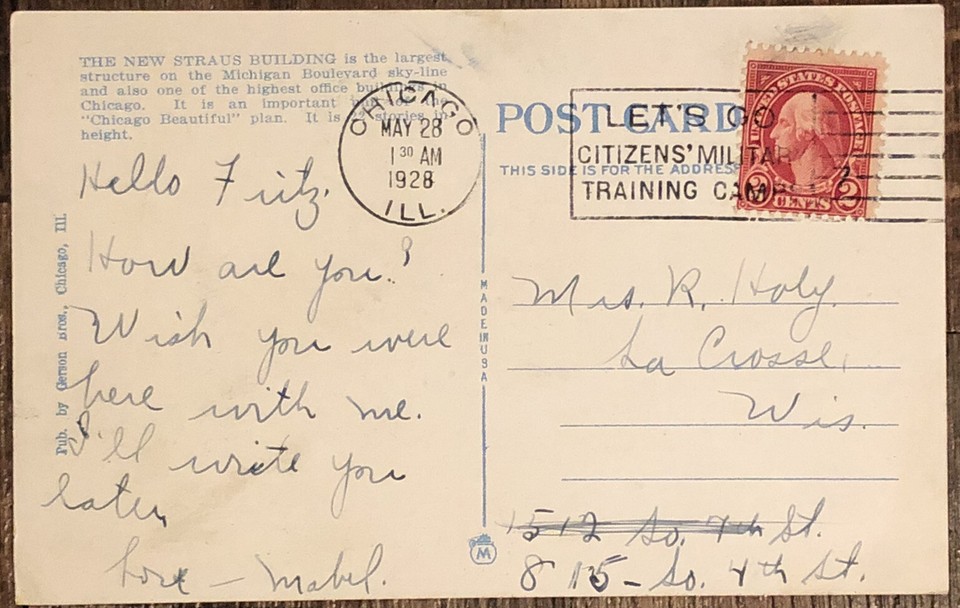 THE NEW STRAUS BUILDING is the largest
structure on the Michigan Boulevard sky-line
and also one of the highest office buildings in
Chicago. It is an important
"Chicago Beautiful" plan. It is stories in
height.
CHICAGO
MAY 28
1 30 AM
1928
ILL.
POST CARD
THIS SIDE IS FOR THE ADDRESS
LET'S GO
CITIZENS' MILITARY
TRAINING CAMPS
UNITED STATES POSTAGE
2 CENTS 2
Hello Fritz.
How are you?
Wish you were
here with me.
I'll write you
later.
Love - Mabel.
Pub. by Gerson Bros., Chicago, Ill.
MADE IN USA
M
Mrs. R. Holy.
La Crosse,
Wis.
1512 So. 7th St.
815 - So. 4th St.